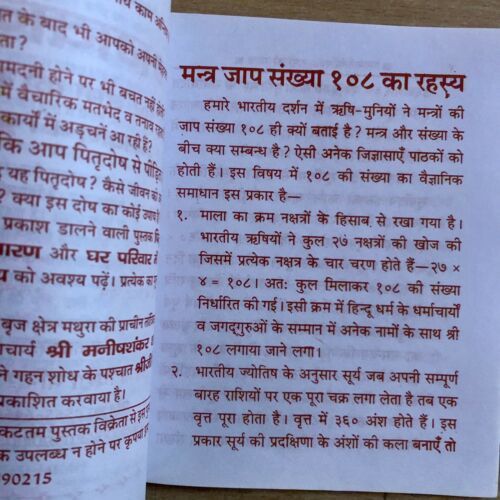 के बाद भी आपको अपनी
ता?
मदनी होने पर भी बचत नहीं
में वैचारिक मतभेद व तनाव
कार्यों में अड़चनें आ रही हैं?
कि आप पितृदोष से
यह पितृदोष? कैसे जीवन को
? क्या इस दोष का कोई उपाय
प्रकाश डालने वाली पुस्तक
और घर परिवार
को अवश्य पढ़ें। प्रत्येक का
बृज क्षेत्र मथुरा की प्राचीन
चार्य श्री मनीषशंकर
ने गहन शोध के पश्चात श्रीजी
प्रकाशित करवाया है।
कटतम पुस्तक विक्रेता से
क उपलब्ध न होने पर कृपया
90215
मन्त्र जाप संख्या १०८ का रहस्य
हमारे भारतीय दर्शन में ऋषि-मुनियों ने मन्त्रों की
जाप संख्या १०८ ही क्यों बताई है? मन्त्र और संख्या के
बीच क्या सम्बन्ध है? ऐसी अनेक जिज्ञासाएँ पाठकों को
होती हैं। इस विषय में १०८ की संख्या का वैज्ञानिक
समाधान इस प्रकार है—
१. माला का क्रम नक्षत्रों के हिसाब से रखा गया है।
भारतीय ऋषियों ने कुल २७ नक्षत्रों की खोज की
जिसमें प्रत्येक नक्षत्र के चार चरण होते हैं—२७ ×
४ = १०८। अतः कुल मिलाकर १०८ की संख्या
निर्धारित की गई। इसी क्रम में हिन्दू धर्म के धर्माचार्यों
व जगद्गुरुओं के सम्मान में अनेक नामों के साथ श्री
१०८ लगाया जाने लगा।
२. भारतीय ज्योतिष के अनुसार सूर्य जब अपनी सम्पूर्ण
बारह राशियों पर एक पूरा चक्र लगा लेता है तब एक
वृत्त पूरा होता है। वृत्त में ३६० अंश होते हैं। इस
प्रकार सूर्य की प्रदक्षिणा के अंशों की कला बनाएँ तो